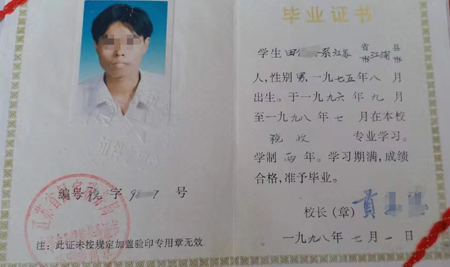 毕业证书
学生 田 系 江苏 省市 县市
人，性别 男，一九七五年八月
出生。于一九九六年九月
至一九九八年七月在本校
税收 专业学习。
学制 两 年。学习期满，成绩
合格，准予毕业。
校长（章）黄
一九九八年七月一日
编号 税 字 号
注：此证未按规定加盖验印专用章无效